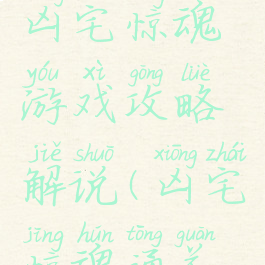 凶宅惊魂
yóu xì gōng lüè
游戏攻略
jiě shuō xiōng zhái
解说(凶宅
jīng hún tōng guān
惊魂通关